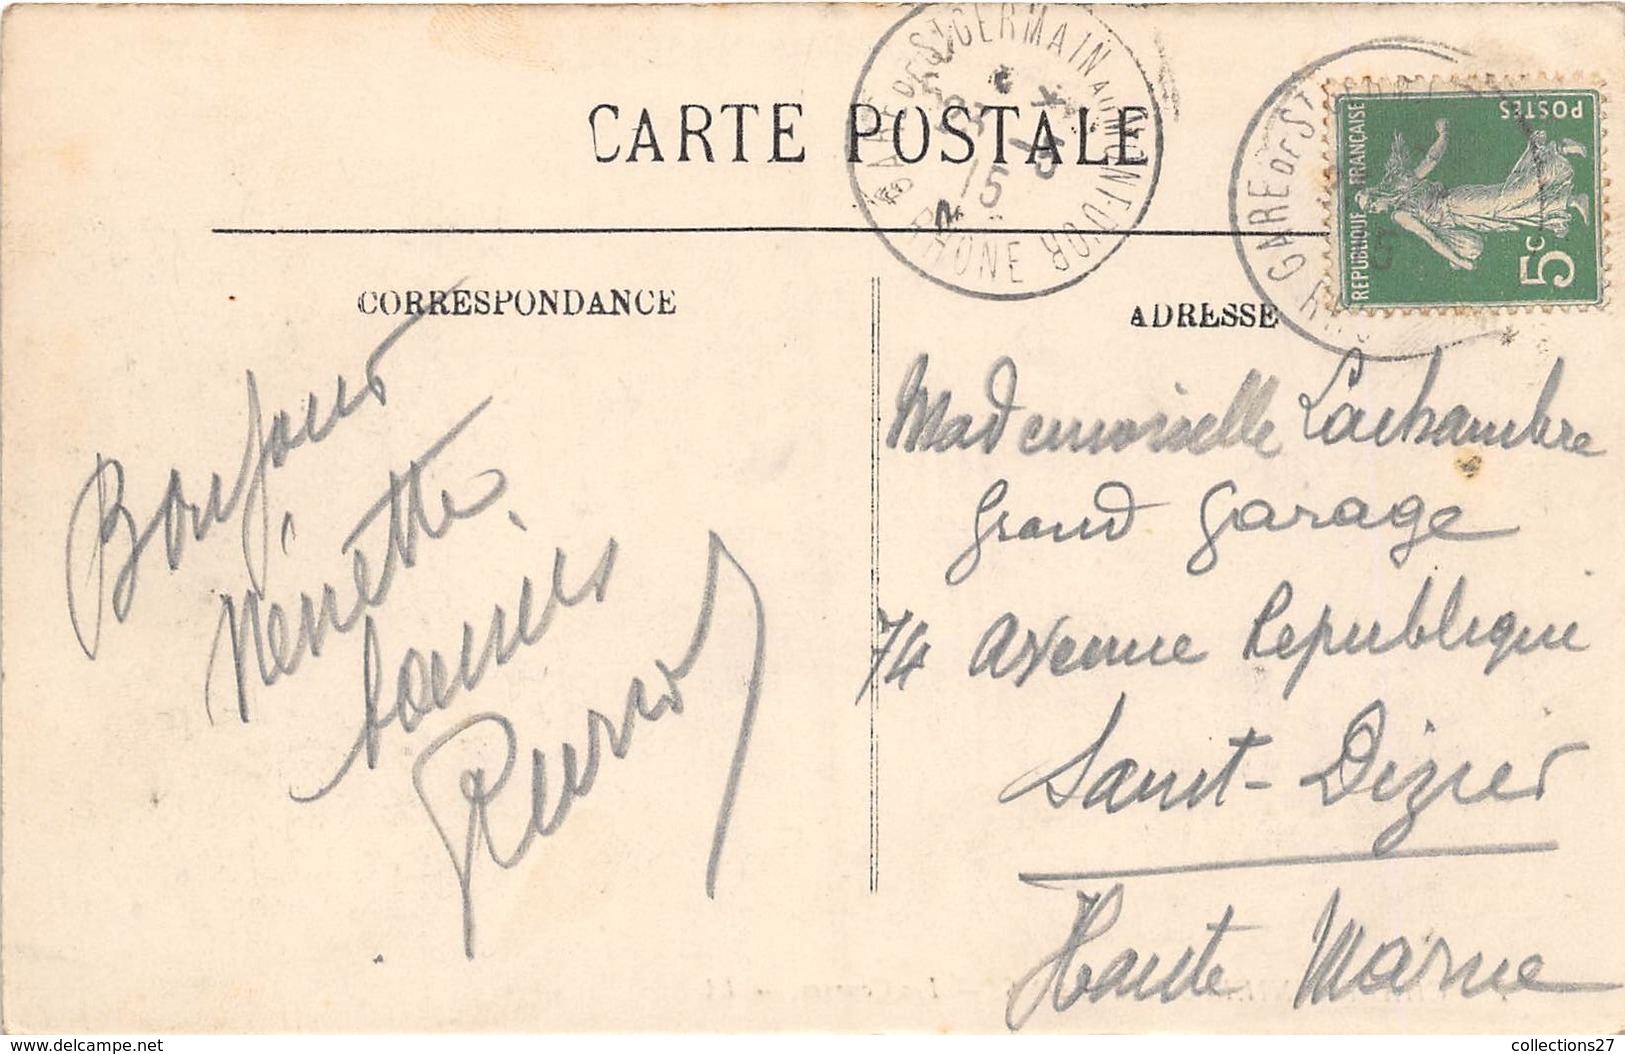 CARTE POSTALE
GARE DE ST GERMAIN AU MONT D'OR
RHONE
GARE DE ST
REPUBLIQUE FRANÇAISE
POSTES
5c
CORRESPONDANCE
Bonjour
Nénette
ADRESSE
Mademoiselle Lachambre
Grand Garage
74 Avenue Republique
Saint-Dizier
Haute Marne
collections27
delcampe.net